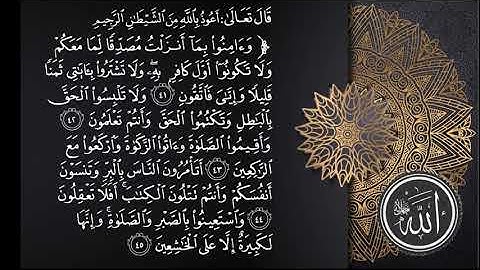 قَالَ تَعَالَىٰ: أَعُوذُ بِاللَّهِ مِنَ الشَّيْطَانِ الرَّجِيمِ
﴿ وَءَامِنُوا۟ بِمَآ أَنزَلْتُ مُصَدِّقًا لِّمَا مَعَكُمْ
وَلَا تَكُونُوٓا۟ أَوَّلَ كَافِرٍۭ بِهِۦ ۖ وَلَا تَشْتَرُوا۟ بِـَٔايَـٰتِى ثَمَنًا
قَلِيلًا وَإِيَّـٰىَ فَٱتَّقُونِ ٤١ وَلَا تَلْبِسُوا۟ ٱلْحَقَّ
بِٱلْبَـٰطِلِ وَتَكْتُمُوا۟ ٱلْحَقَّ وَأَنتُمْ تَعْلَمُونَ ٤٢
وَأَقِيمُوا۟ ٱلصَّلَوٰةَ وَءَاتُوا۟ ٱلزَّكَوٰةَ وَٱرْكَعُوا۟ مَعَ
ٱلرَّٰكِعِينَ ٤٣ أَتَأْمُرُونَ ٱلنَّاسَ بِٱلْبِرِّ وَتَنسَوْنَ
أَنفُسَكُمْ وَأَنتُمْ تَتْلُونَ ٱلْكِتَـٰبَ ۚ أَفَلَا تَعْقِلُونَ
٤٤ وَٱسْتَعِينُوا۟ بِٱلصَّبْرِ وَٱلصَّلَوٰةِ ۚ وَإِنَّهَا
لَكَبِيرَةٌ إِلَّا عَلَى ٱلْخَـٰشِعِينَ ٤٥
الله